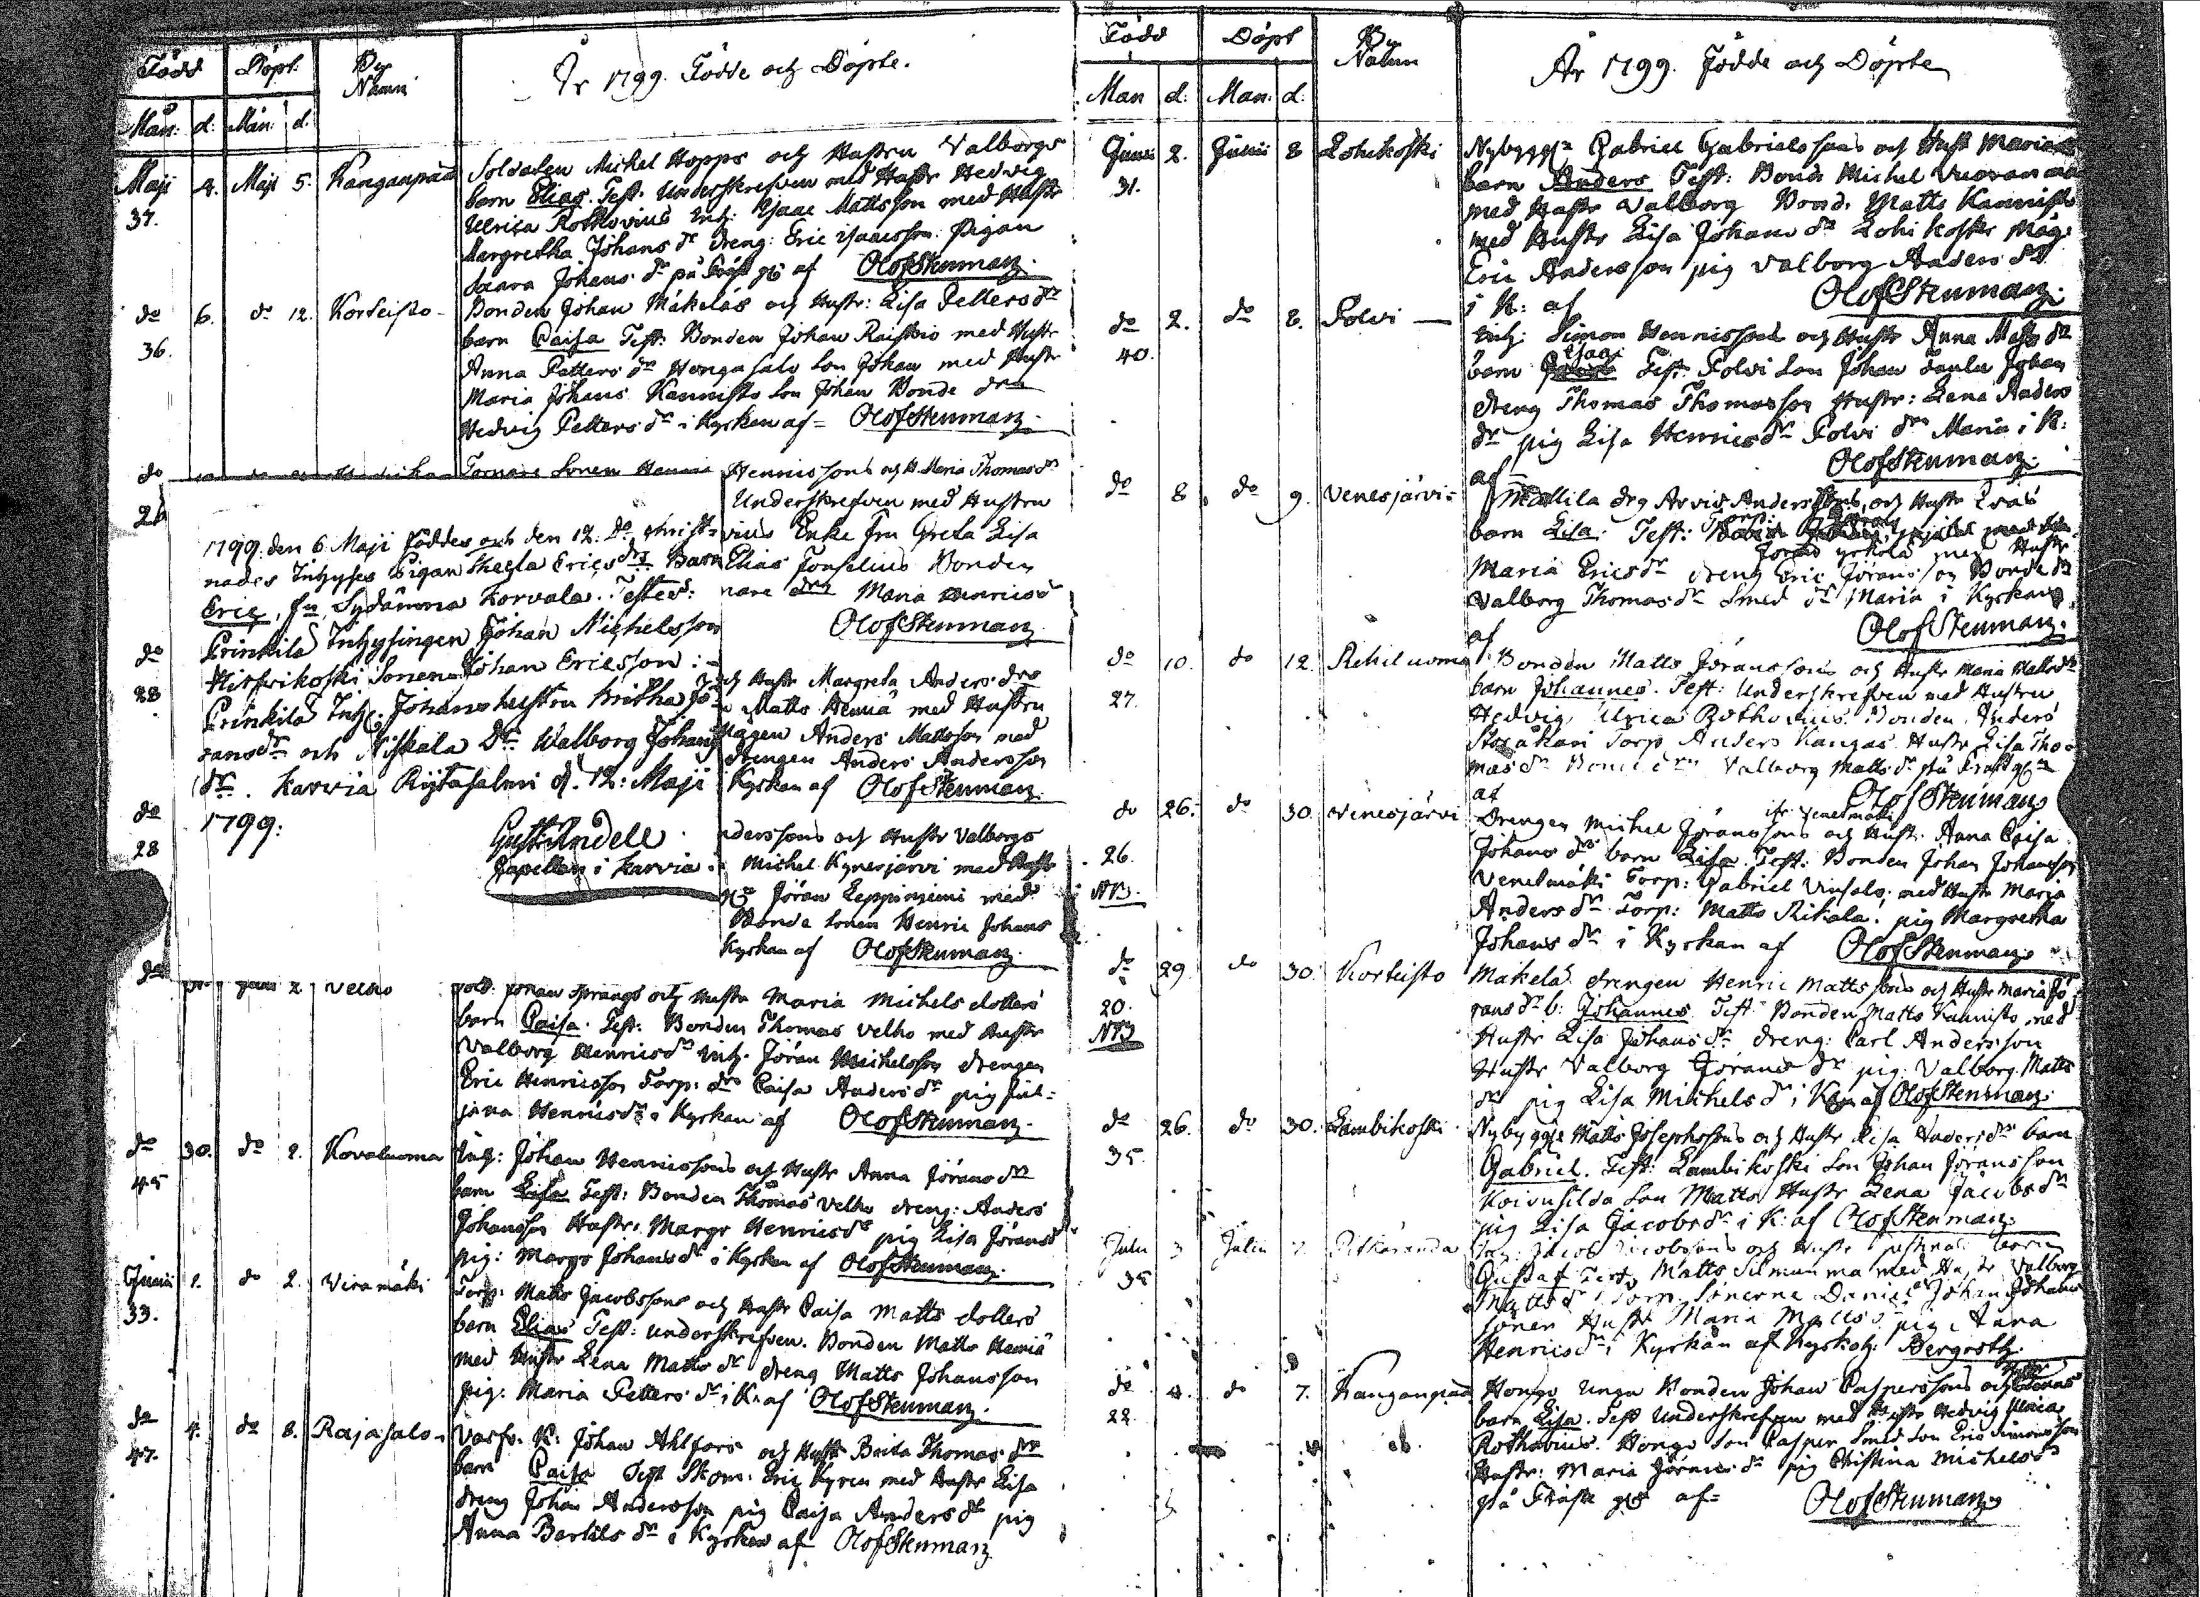 Född Döpt: By Namn År 1799. Födde och Döpte.
Mån: d: Mån: d:
Maji 4. Maji 5. Kangaspää Soldaten Michel Hopps och Hustru Valborgs
37. barn Elias. Test: Underskrefven med Hustr Hedvig
Ulrica Rothovius Inh: Isaac Mattsson med Hustr
Margretha Johans dr dreng: Eric Isaacsson. Pigan
Saara Johans dr på Präst gs af Olof Stenman.
do 6. do 12. Korteisto - Bonden Johan Mäkeläs och Hustr: Lisa Petters dr
36. barn Caisa Test: Bonden Johan Raistvio med Hustr
Anna Petters dr Hongasalo Son Johan med Hustr
Maria Johans Kannisto Son Johan Bonde drn
Hedvig Petters dr i Kyrkan af = Olof Stenman.
do Hennissons och H Maria Thomas dr
Underskrefven med Hustru
vius Enke fru Greta Lisa
Elias Fonselius Bonden
nare drn Maria Henrics d
Olof Stenman.
1799. den 6 Maji föddes och den 12. do christ-
nades Inhyses Pigan Thecla Erics drs Barn
Eric, fn Sydänma Korvala. Testes:
Prinkilä Inhysingen Johan Michelsson
Sonen Johan Ericsson :-
Prinkilä Inh: Johans hustru Britha Jö-
rans dr och Niskala Dr Walborg Johans
dr. Karvia Rytasalmi d. 12: Maji
1799: Gust: Andell
Capellan i Karvia.
do
28 och Hustr Margreta Anders drs
Matts Heniä med Hustru
Mågen Anders Mattsson med
drengen Anders Andersson
Kyrkan af Olof Stenman.
do
28 nderssons och Hustr Valborgs
Michel Kynesjärvi med Hustr
Jöran Leppiniemi med
Bonde sonen Henric Johans
Kyrkan af Olof Stenman.
do 2 Velho Sold: Johan Sprangs och Hustr Maria Michels dotters
barn Caisa. Test: Bonden Thomas Velho med Hustr
Valborg Henrics dr Inh. Jöran Michelsson drengen
Eric Henricsson Torp: drn Caisa Anders dr pig Jul=
jana Henrics dr i Kyrkan af Olof Stenman.
do 30. do 2. Kovaluoma Inh: Johan Hennissons och Hustr Anna Jörans dr
45 barn Lisa Test: Bonden Thomas Velho dreng: Anders
Johansson Hustr. Margr Henrics dr pig Lisa Jörans d
pig: Margr Johans dr i Kyrkan af Olof Stenman.
Junii 1. do 2. Viramäki Torp: Matts Jacobssons och Hustr Caisa Matts dotters
33. barn Elias Test: underskrefven. Bonden Matts Heniä
med Hustr Lena Matts dr dreng Matts Johansson
pig: Maria Petters dr i K: af Olof Stenman.
do 4. do 8. Rajasalo - Varfv. K: Johan Ahlfors och Hustr Brita Thomas drs
47. barn Caisa Test Skom: Eric Kyren med Hustr Lisa
dreng Johan Andersson pig Caisa Anders dr pig
Anna Bertils dr i Kyrkan af Olof Stenman
Född Döpt By Namn År 1799. Födde och Döpte
Man d: Man: d:
Junii 2. Junii 8 Lohikoski Nybygge Gabriel Gabrielssons och Hustr Marias
31. barn Anders Test: Bond Michel Vuorenmaa
med Hustr Valborg Bond. Matts Kannisto
med Hustr Lisa Johans dr Lohikoski Måg.
Eric Andersson pig Valborg Anders dr
i K: af Olof Stenman.
do 2. do 8. Polvi — Inh: Simon Hennissons och Hustr Anna Matts dr
40. barn Isaac Test: Polvi Son Johan Johan
dreng Thomas Thomasson Hustr: Lena Anders
dr pig Lisa Henrics dr Polvi drn Maria i K:
af Olof Stenman.
do 8 do 9. Venesjärvi - Mattila drg Arvid Anderssons, och Hustr Evas
barn Lisa. Test:
Yrkola med Hustr
Maria Erics dr dreng Eric Jöransson Bonde dr
Valborg Thomas dr Smed dr Maria i Kyrkan
af Olof Stenman.
do 10. do 12. Rehiluoma Bonden Matts Jöranssons och Hustr Maria Matts dr
27. barn Johannes. Test: Underskrefven med Hustru
Hedvig Ulrica Rothovius. Bonden Anders
Torp Anders Kangas Hustr Lisa Tho-
mas dr Bond drn Valborg Matts dr på Prästgn
af Olof Stenman
do 26. do 30. Venesjärvi Drengen Michel Jöranssons ifr Venesmäki och Hustr Anna Caisa
26. Johans dr barn Lisa. Test: Bonden Johan Johansson
NB. Venesmäki Torp: Gabriel Vinsalo, med Hustr Maria
Anders dr Torp: Matts Rikala. pig Margretha
Johans dr i Kyrkan af Olof Stenman.
do 29. do 30. Korteisto Mäkelä drengen Henric Mattssons och Hustr Maria Jö-
20. rans dr b: Johannes Test: Bonden Matts Kannisto med
NB Hustr Lisa Johans dr dreng: Carl Andersson
Hustr Valborg Jörans dr pig: Valborg Matts
dr pig Lisa Michels dr i Kyrkan af Olof Stenman.
do 26. do 30. Lambikoski Nybygge Matts Josephssons och Hustr Lisa Anders drs barn
35. Gabriel. Test: Lambikoski Son Johan Jöransson
Koivusilda Son Matts Hustr Lena Jacobs dr
pig Lisa Jacobs dr i K: af Olof Stenman.
Julii 3 Julii 7. Pitkäranda Inh: Jacob Jacobssons och Hustr barn
35 Gustaf Test: Matts Silmunma med Hustr Valborg
Matts dr Torp: Sönerne Daniel och Johan Johans
söner Hustr Maria Matts dr pig: Anna
Henrics dr i Kyrkan af Kyrkoh: Bergroth.
do 4. do 7. Kangaspää Hongo Unga Bonden Johan Caspersons och Hustr
22. barn Lisa. Test Underskrefven med Hustr Hedvig Ulrica
Rothovius. Hongo Son Casper Smed Son Eric Simonsson
Hustr: Maria Jörans dr pig Christina Michels dr
på Präste gs af = Olof Stenman